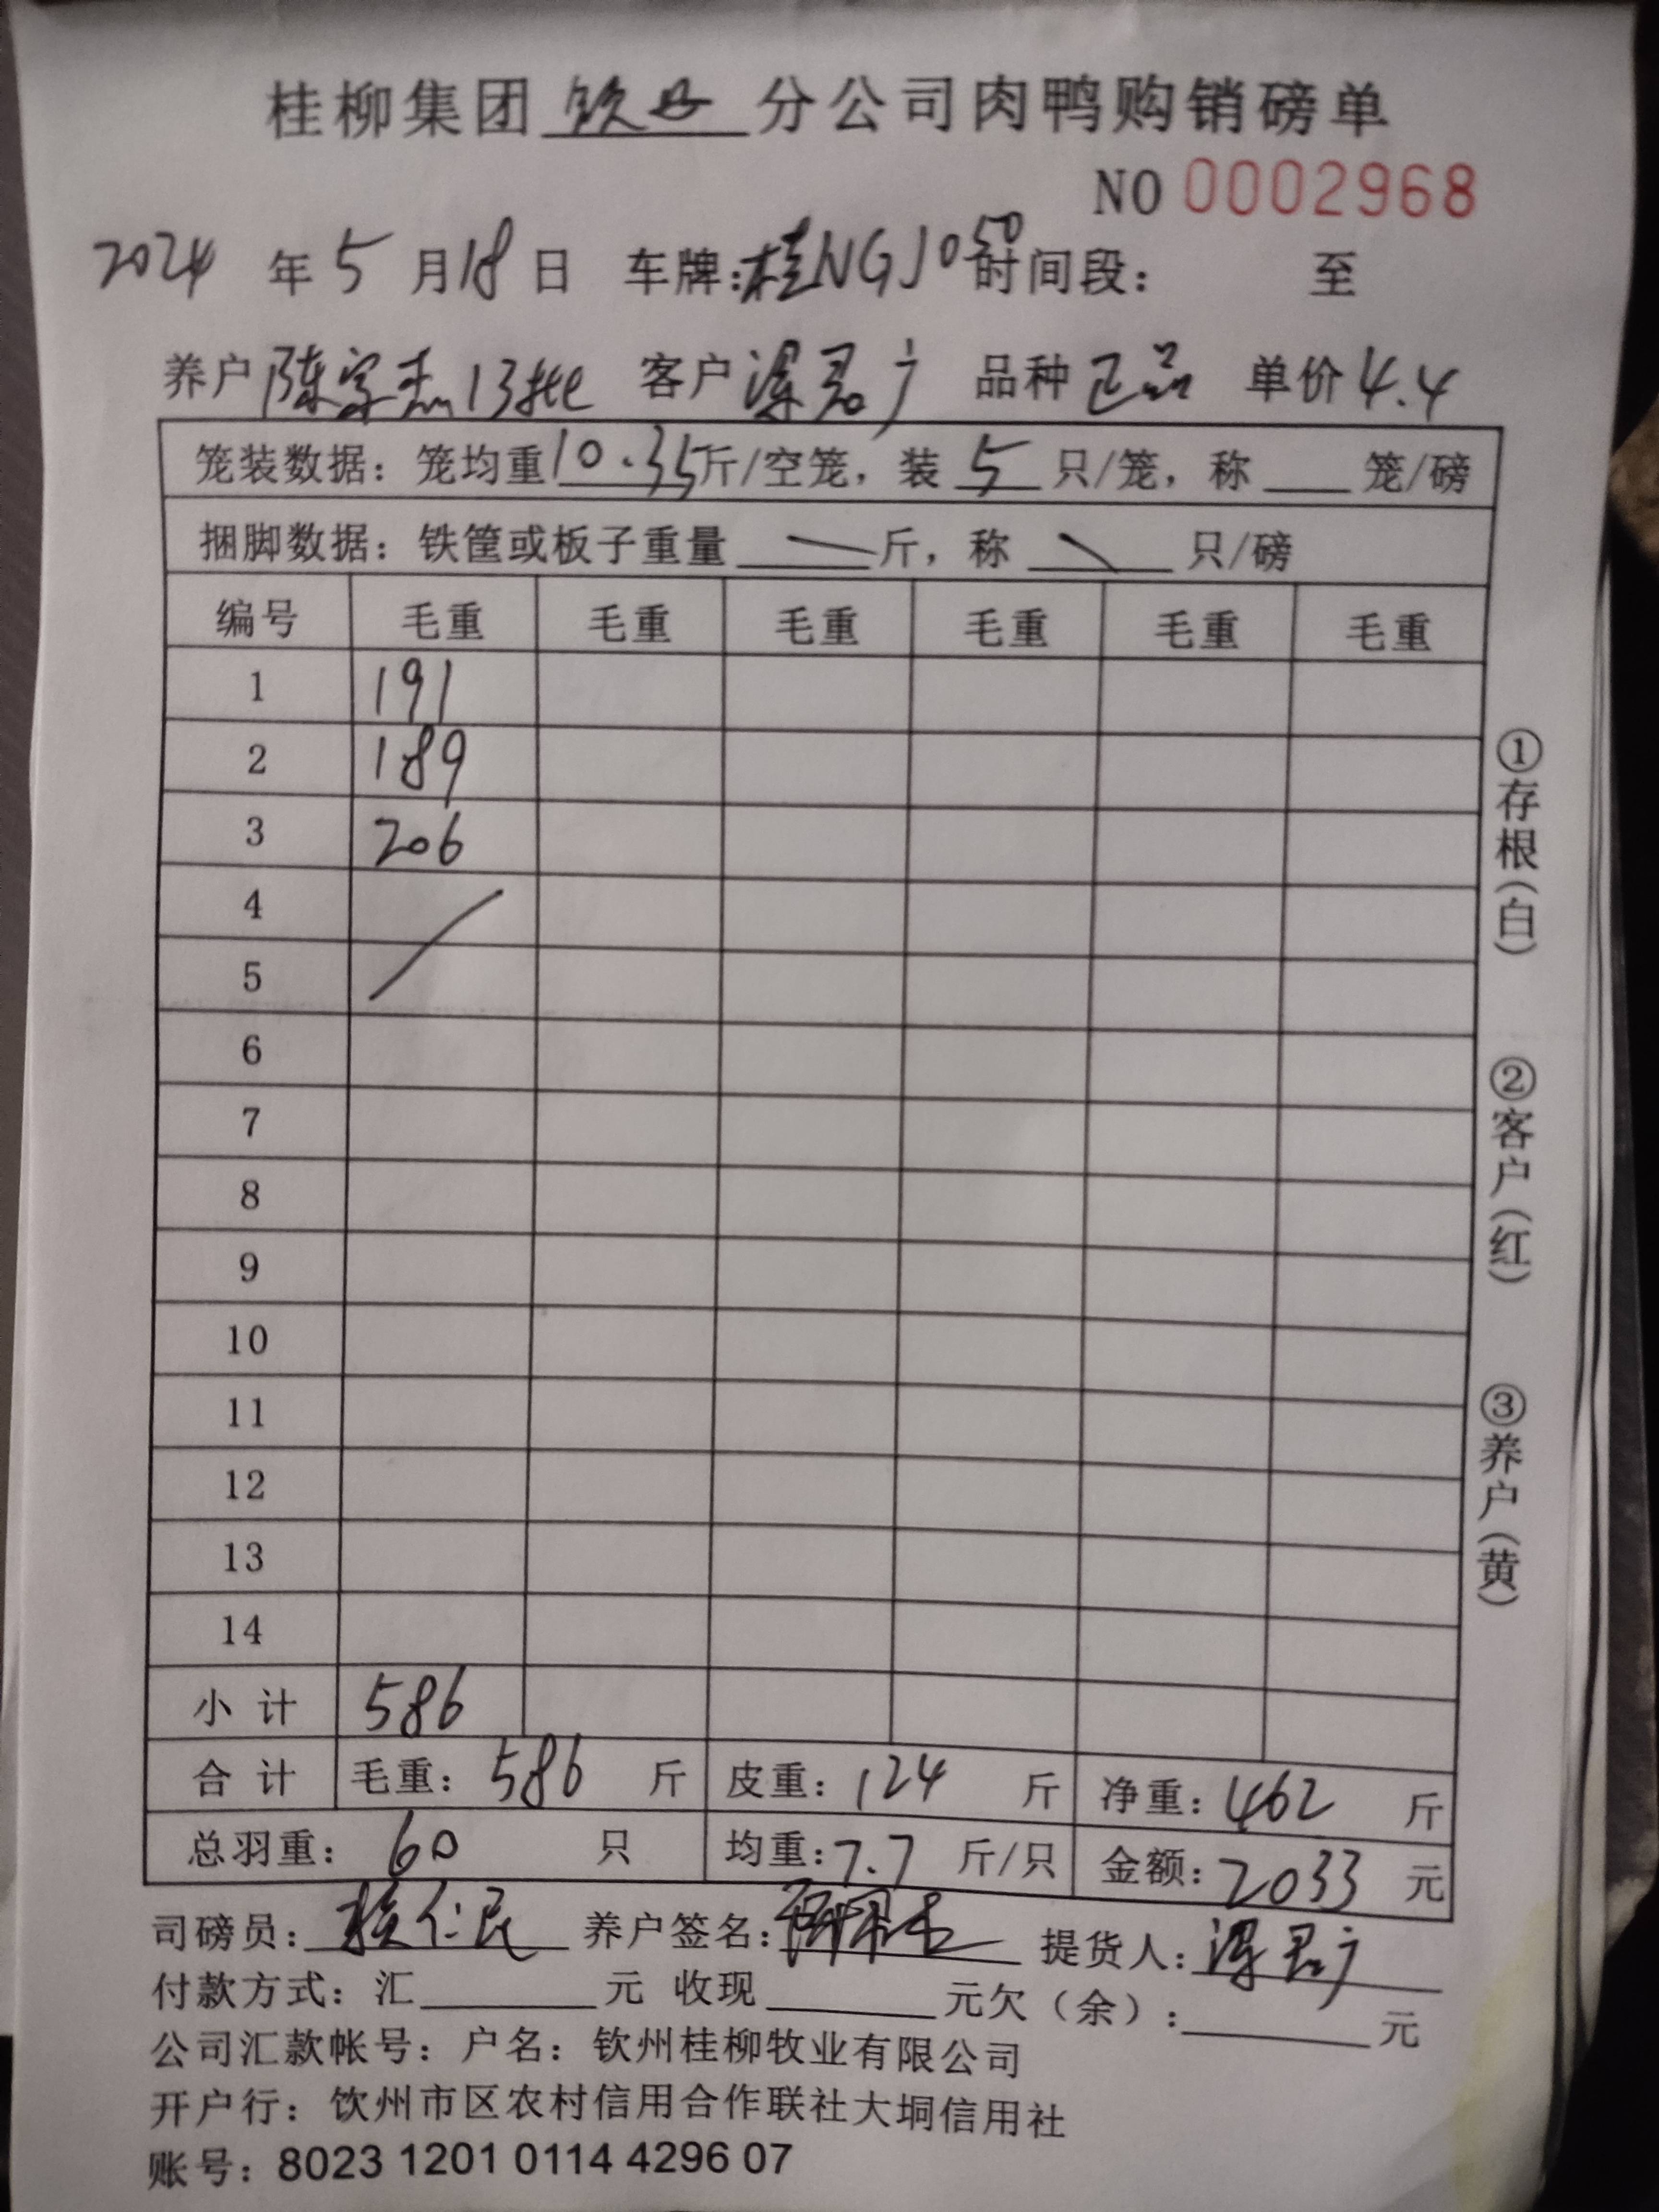 桂柳集团 钦 分公司肉鸭购销磅单
NO 0002968
2024 年 5 月 18 日 车牌：桂NGJ050 时间段： 至
养户 陈 杰 13批 客户 梁 广 品种 正品 单价 4.4
笼装数据：笼均重 10.35 斤/空笼，装 5 只/笼，称 笼/磅
捆脚数据：铁筐或板子重量 斤，称 只/磅
编号 毛重 毛重 毛重 毛重 毛重 毛重
1 191
2 189
3 206
4
5
6
7
8
9
10
11
12
13
14
小 计 586
合 计 毛重：586 斤 皮重：124 斤 净重：462 斤
总羽重：60 只 均重：7.7 斤/只 金额：2033 元
司磅员： 仁民 养户签名： 提货人： 广
付款方式：汇 元 收现 元欠（余）： 元
公司汇款帐号：户名：钦州桂柳牧业有限公司
开户行：钦州市区农村信用合作联社大垌信用社
账号：8023 1201 0114 4296 07
①存根（白）
②客户（红）
③养户（黄）